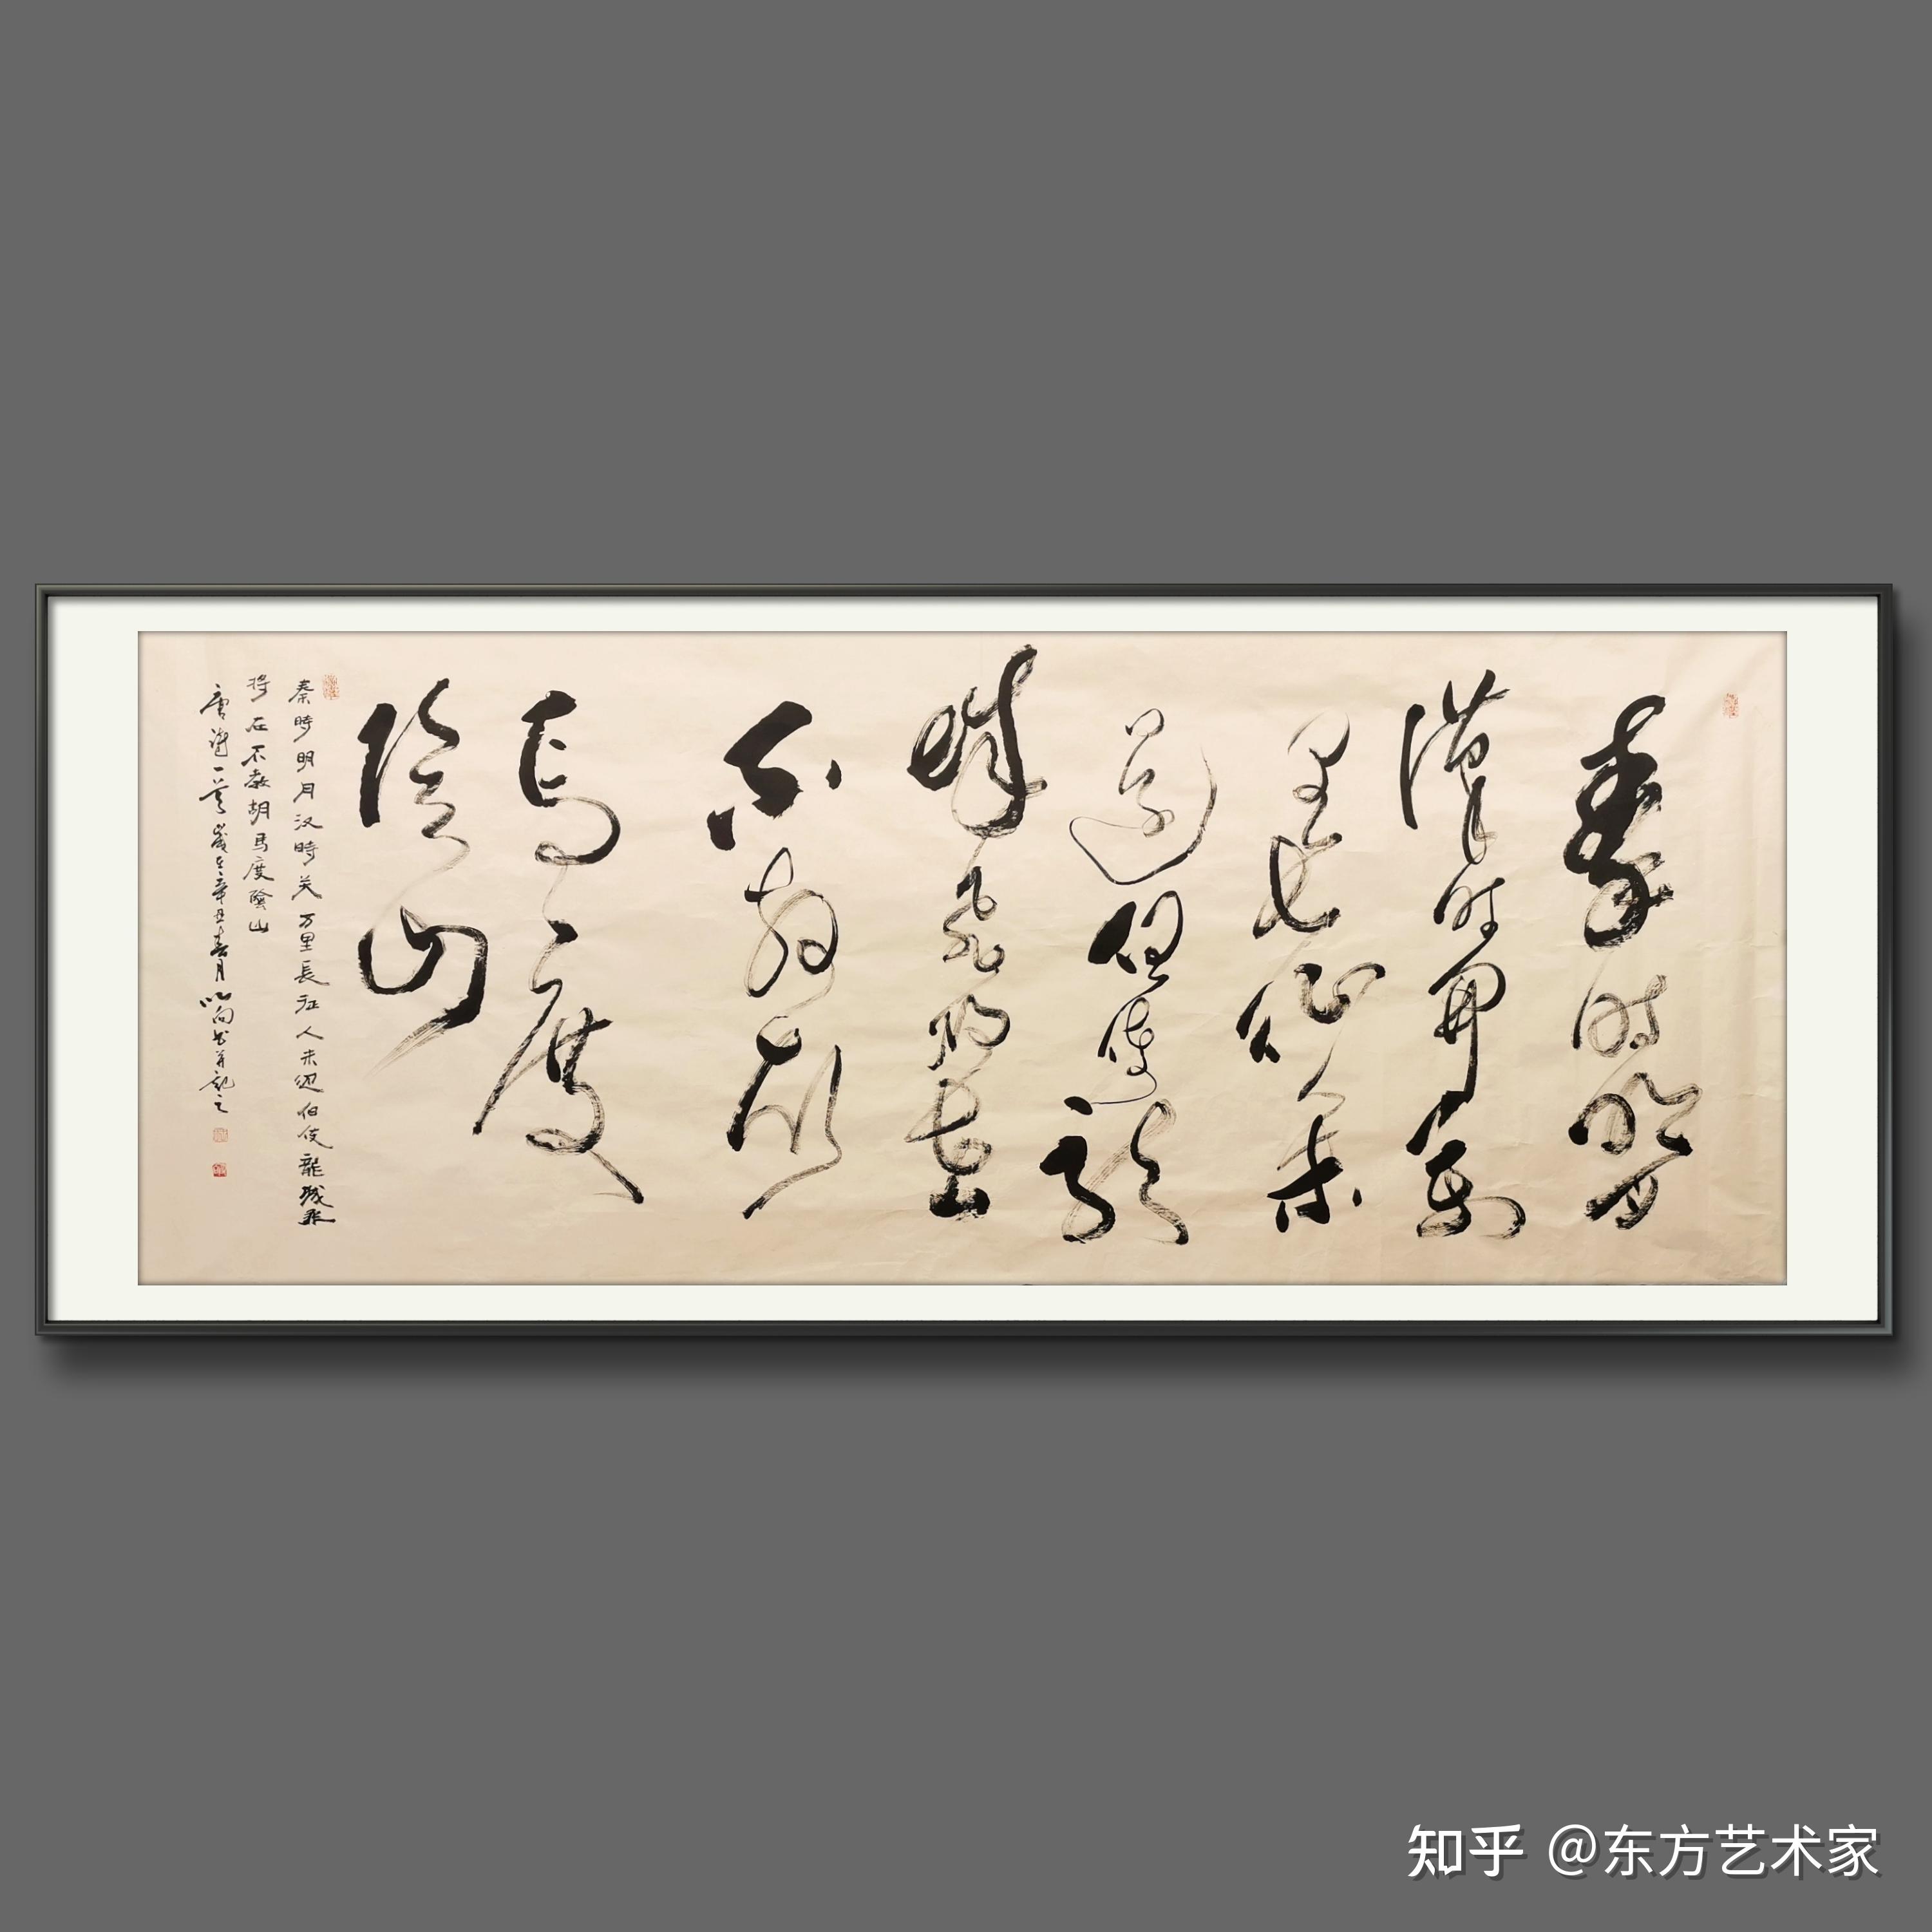 秦時明月
漢時關萬
里長征人未
還但使龍
城飛將在
不教胡
馬度
陰山
秦時明月汉時关万里長征人未还但使龍城飛
将在不教胡馬度陰山
唐詩一首歲在辛丑春月以向书并記之
知乎 @东方艺术家